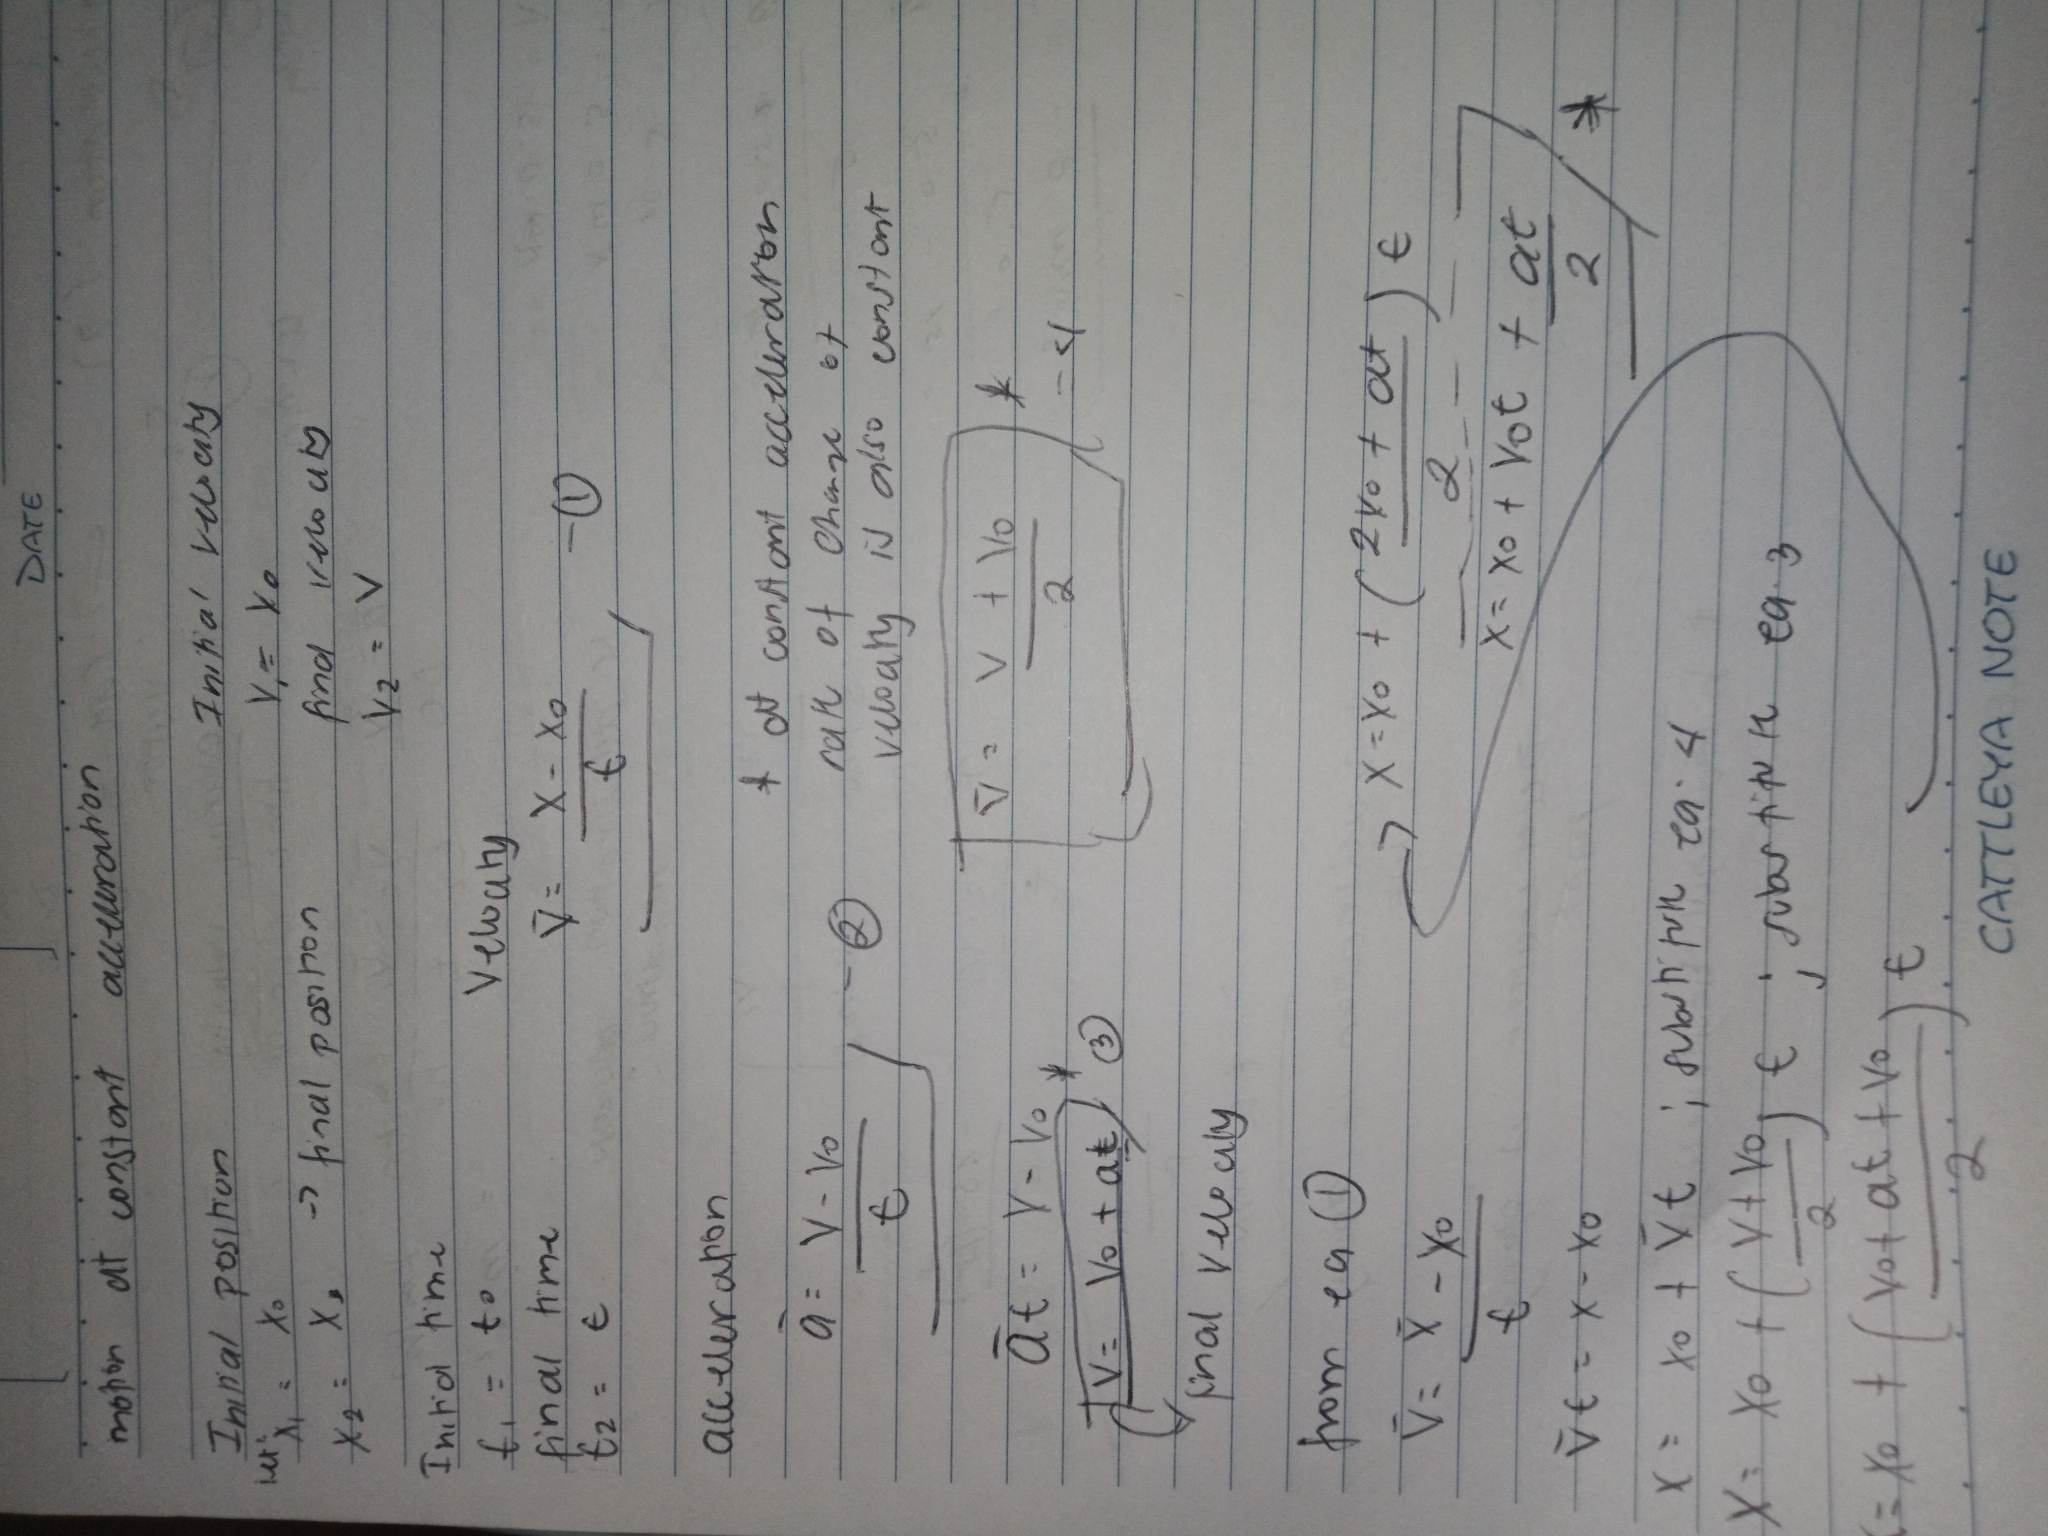 DATE
motion at constant acceleration
Initial position
let:
x₁ = x₀
x₂ = x, → final position
Initial velocity
v₁ = v₀
final velocity
v₂ = v
Initial time
t₁ = t₀
final time
t₂ = t
Velocity
v̄ = x - x₀ / t - ①
acceleration
ā = v - v₀ / t - ②
* at constant acceleration
rate of change of
velocity is also constant
āt = v - v₀
v = v₀ + at * ③
final velocity
v̄ = v + v₀ / 2 * - 4
from eq ①
v̄ = x - x₀ / t
v̄t = x - x₀
x = x₀ + v̄t ; substitute eq. 4
x = x₀ + (v + v₀ / 2) t ; substitute eq. 3
x = x₀ + (v₀ + at + v₀ / 2) t
→ x = x₀ + (2v₀ + at / 2) t
x = x₀ + v₀t + at / 2 *
CATTLEYA NOTE